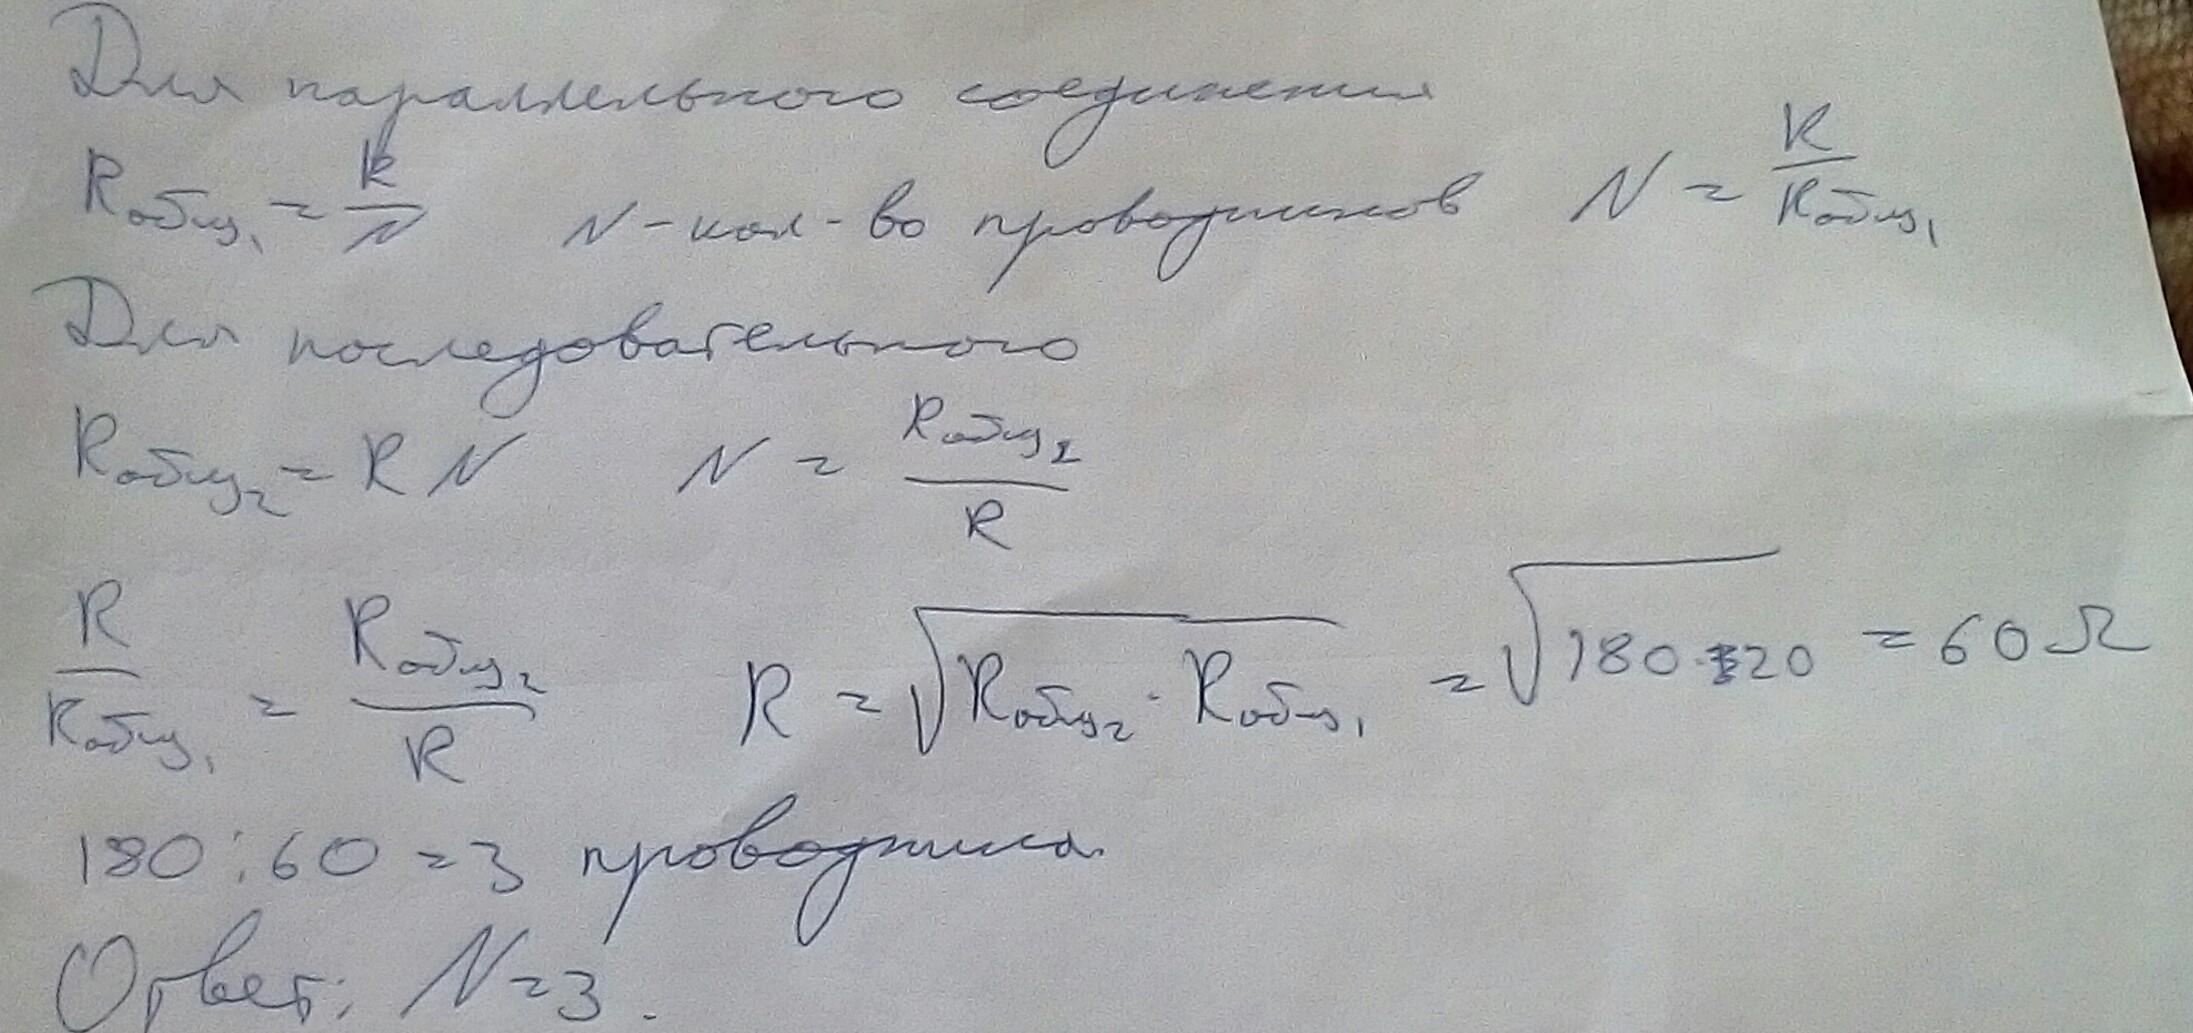 Для параллельного соединения
Rобщ₁ = R/N N-кол-во проводников N = R/Rобщ₁
Для последовательного
Rобщ₂ = R N N = Rобщ₂/R
R/Rобщ₁ = Rобщ₂/R R = √(Rобщ₂ · Rобщ₁) = √(180·20) = 60 Ω
180 : 60 = 3 проводника
Ответ: N = 3.